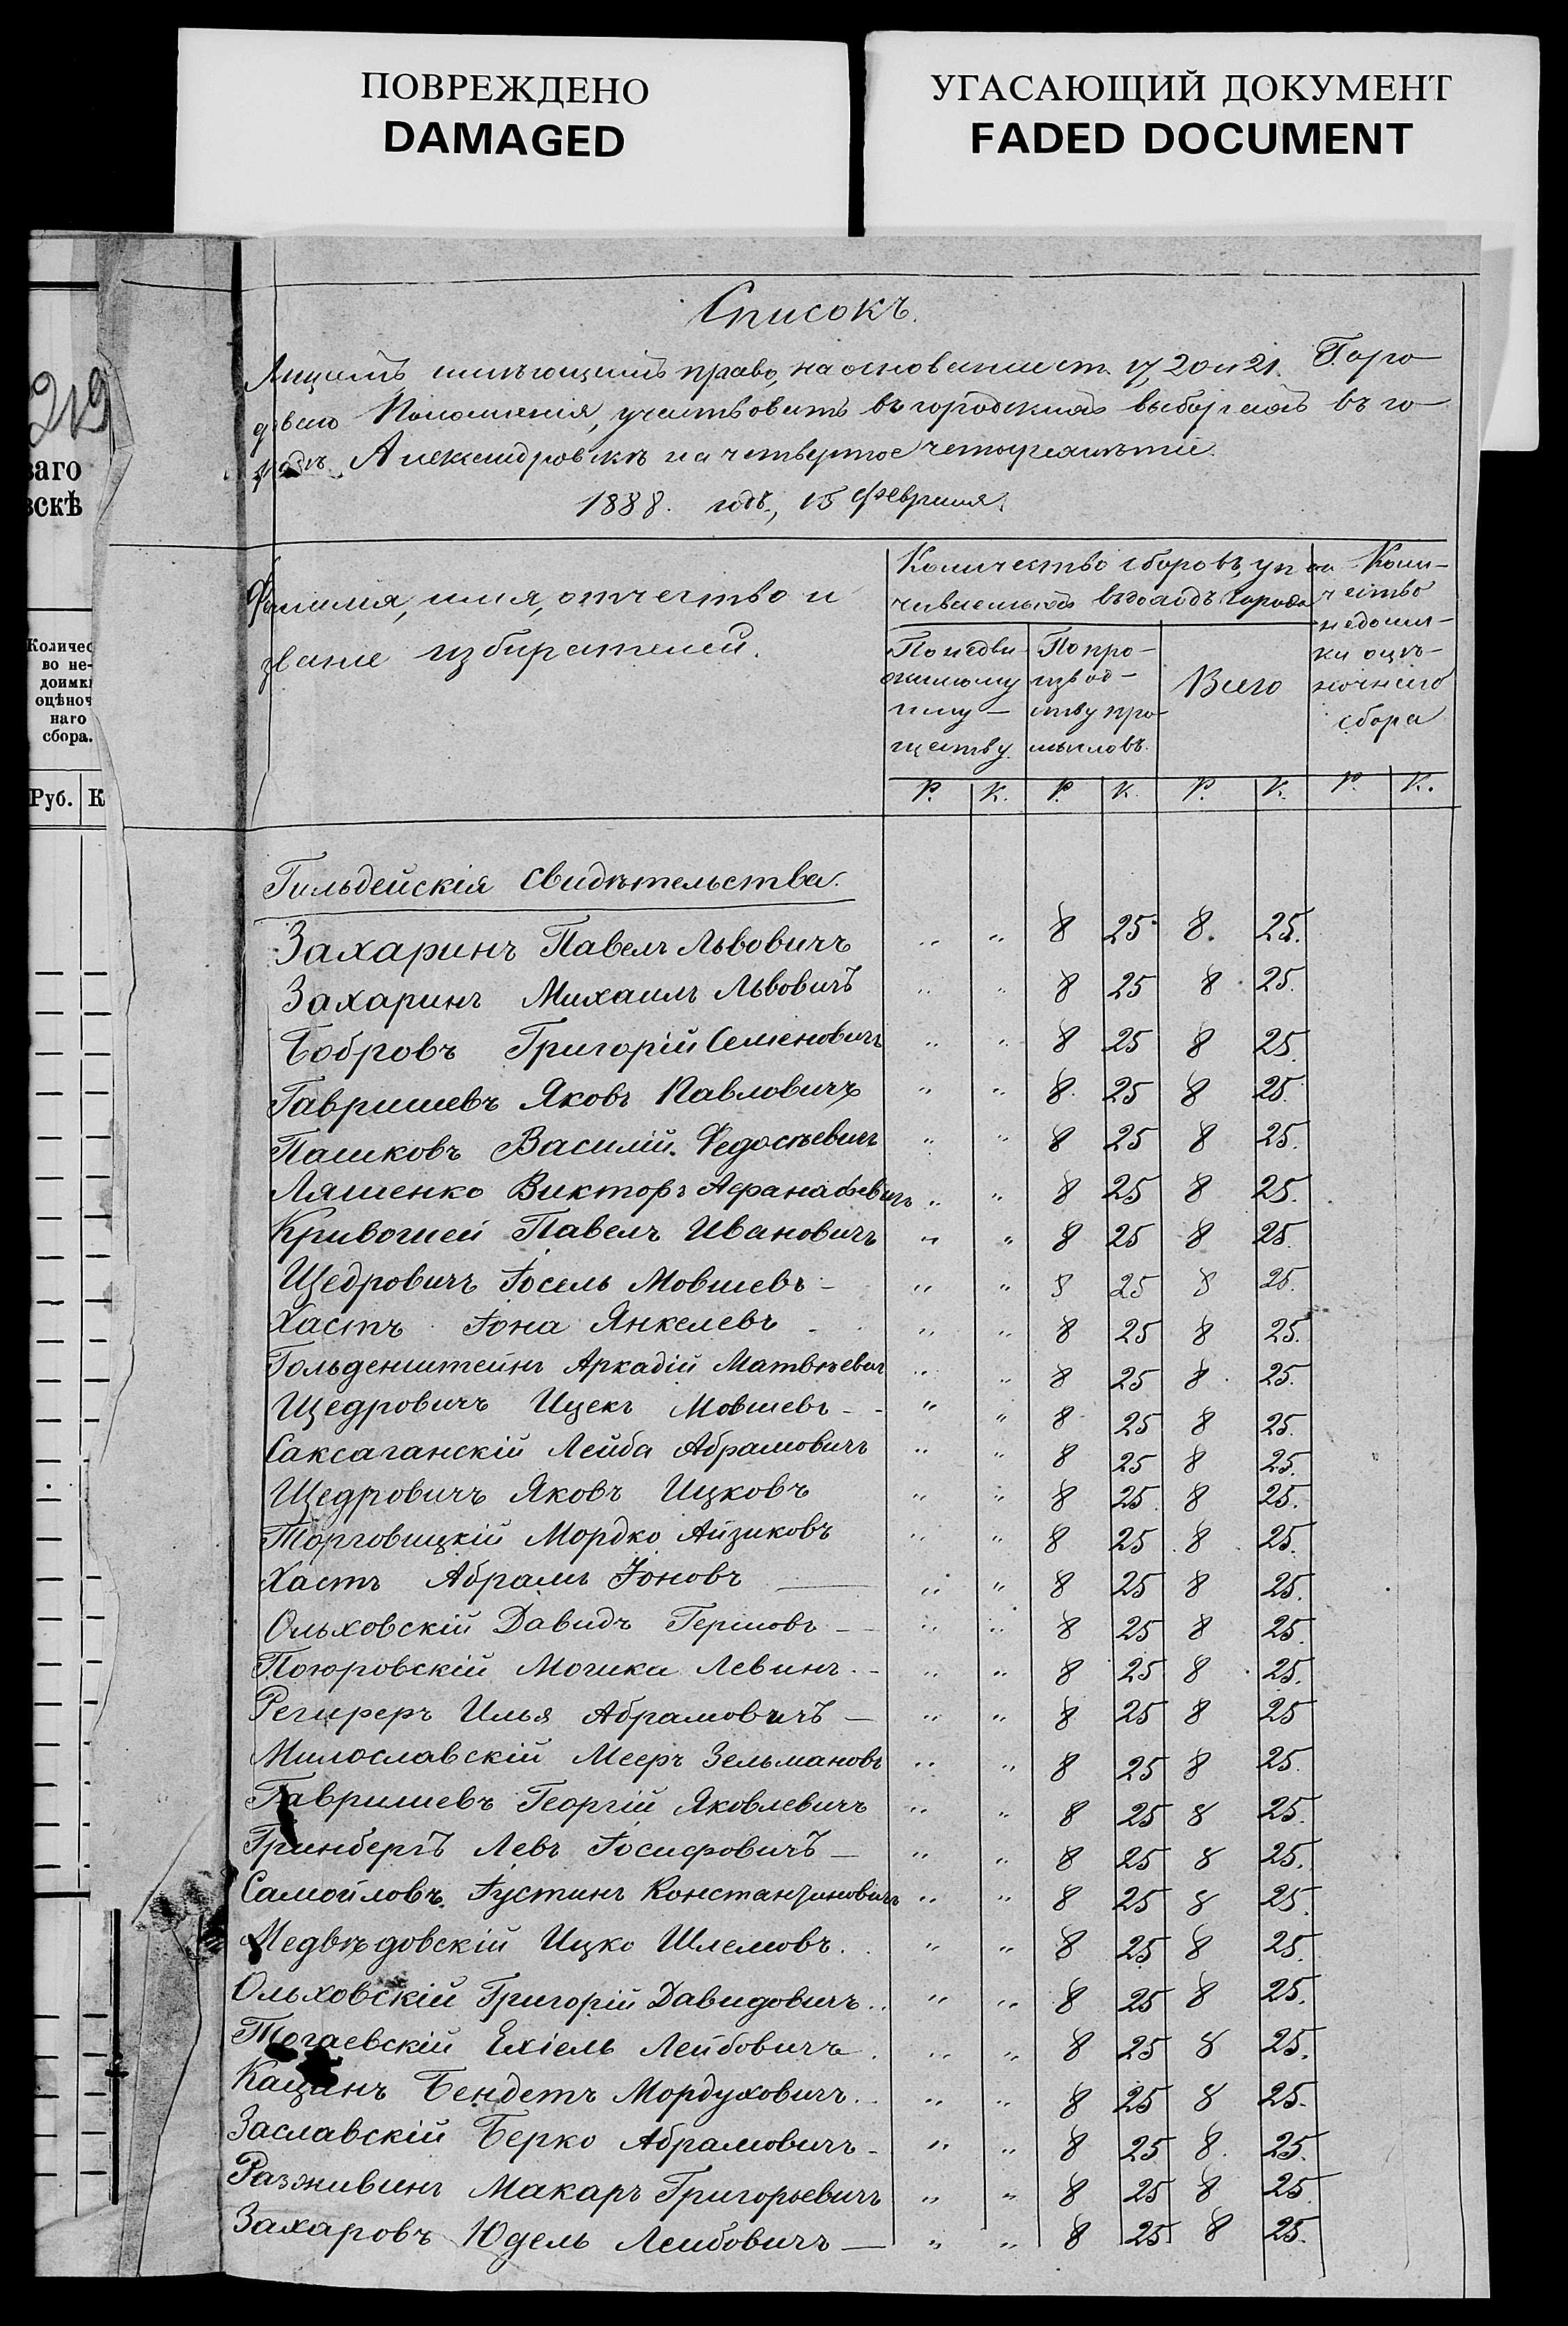 ПОВРЕЖДЕНО
DAMAGED
УГАСАЮЩИЙ ДОКУМЕНТ
FADED DOCUMENT
219
ваго
вскѣ
Количес
во не-
доимк
оцѣноч
наго
сбора.
Руб. К
Списокъ.
Лицамъ имѣющимъ право, на основаніи ст. 17, 20 и 21. Горо
доваго Положенія, участвовать въ городскихъ выборахъ въ го
родѣ Александровскѣ на четвертое четырехлѣтіе.
1888. годъ, 15 февраля.
Фамилія, имя, отчество и
званіе избирателей.
Количество сборовъ, упла
чиваемыхъ въ доходъ города
По недви
жимому
иму-
ществу.
По про-
извод-
ству про-
мысловъ.
Всего
Коли-
чество
недоим-
ки оцѣ-
ночнаго
сбора
Р. К. Р. К. Р. К. Р. К.
Гильдейскія свидѣтельства.
Захаринъ Павелъ Львовичъ " " 8 25 8. 25.
Захаринъ Михаилъ Львовичъ " " 8 25 8 25.
Бобровъ Григорій Семеновичъ " " 8 25 8 25.
Гавришевъ Яковъ Павловичъ " " 8. 25 8 25.
Пашковъ Василій Федосѣевичъ " " 8 25 8 25.
Ляшенко Викторъ Афанасьевичъ " " 8 25 8 25.
Кривошей Павелъ Ивановичъ " " 8 25 8 25.
Щедровичъ Іосель Мовшевъ - " " 8 25 8 25.
Хастъ Іона Янкелевъ " " 8 25 8 25.
Гольденштейнъ Аркадій Матвѣевич " " 8 25 8 25.
Щедровичъ Ицекъ Мовшевъ - - " " 8 25 8 25.
Саксаганскій Лейба Абрамовичъ " " 8 25 8 25.
Щедровичъ Яковъ Ицковъ " " 8 25 8 25.
Торговицкій Мордко Айзиковъ " " 8 25 8 25.
Хастъ Абрамъ Іоновъ — " " 8 25 8 25.
Ольховскій Давидъ Гершовъ - " " 8 25 8 25.
Погоровскій Мошка Левинъ - " " 8 25 8 25.
Региреръ Илья Абрамовичъ — " " 8 25 8 25
Милославскій Мееръ Зельмановъ " " 8 25 8 25.
Гавришевъ Георгій Яковлевичъ " " 8 25 8 25.
Гринбергъ Левъ Іосифовичъ — " " 8 25 8 25.
Самойловъ Іустинъ Константиновичъ " " 8 25 8 25.
Медвѣдовскій Ицко Шлемовъ. " " 8 25 8 25.
Ольховскій Григорій Давидовичъ.. " " 8 25 8 25.
Ехіель Лейбовичъ . " " 8 25 8 25.
Кацинъ Бендетъ Мордуховичъ. " " 8 25 8 25.
Заславскій Берко Абрамовичъ - " " 8 25 8. 25.
Разживинъ Макаръ Григорьевичъ " " 8 25 8 25.
Захаровъ Юдель Лейбовичъ — " " 8 25 8 25.